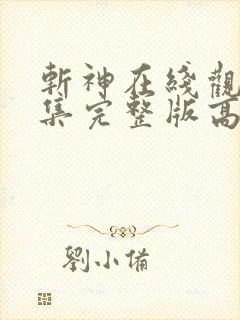 斬神在綫觀
集完整版高
劉小備